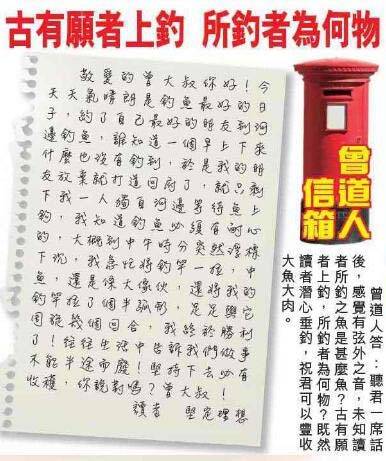 古有願者上釣 所釣者為何物
敬愛的曾大叔你好！今
天天氣晴朗是釣魚最好的日
子，約了自己最好的朋友到河
邊釣魚，誰知道一個早上下來
什麼也沒有釣到，於是我的朋
友放棄就打道回府了，就只剩
下我一人獨自河邊等待魚上
鉤，我知道釣魚必須有耐心
的，大概到中午時分突然浮標
下沉，我急忙將釣竿一拉，中
魚，還是條大傢伙，還將我的
釣竿拉了個半弧形，足足與它
周旋幾個回合，我終於勝利
了！往往生活中告訴我們做事
不能半途而廢！堅持下去必有
收穫，你說對嗎？曾大叔！
讀者 堅定理想
曾道人
信箱
曾道人答：聽君一席話
後，感覺有弦外之音，未知讀
者所釣之魚是甚麼魚？古有願
者上釣，所釣者為何物？既然
讀者潛心垂釣，祝君可以豐收
大魚大肉。